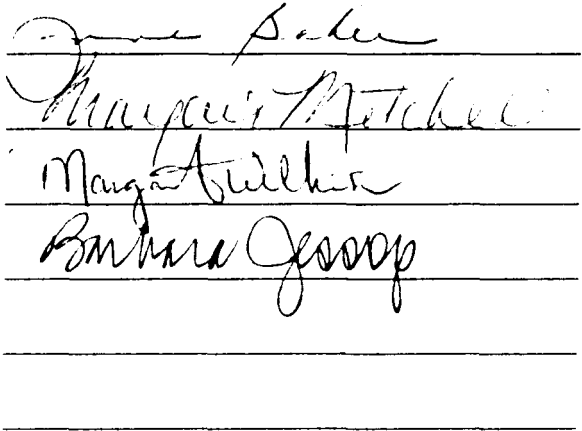 Baker
Margaret Mitchell
Margaret
Barbara Jessop